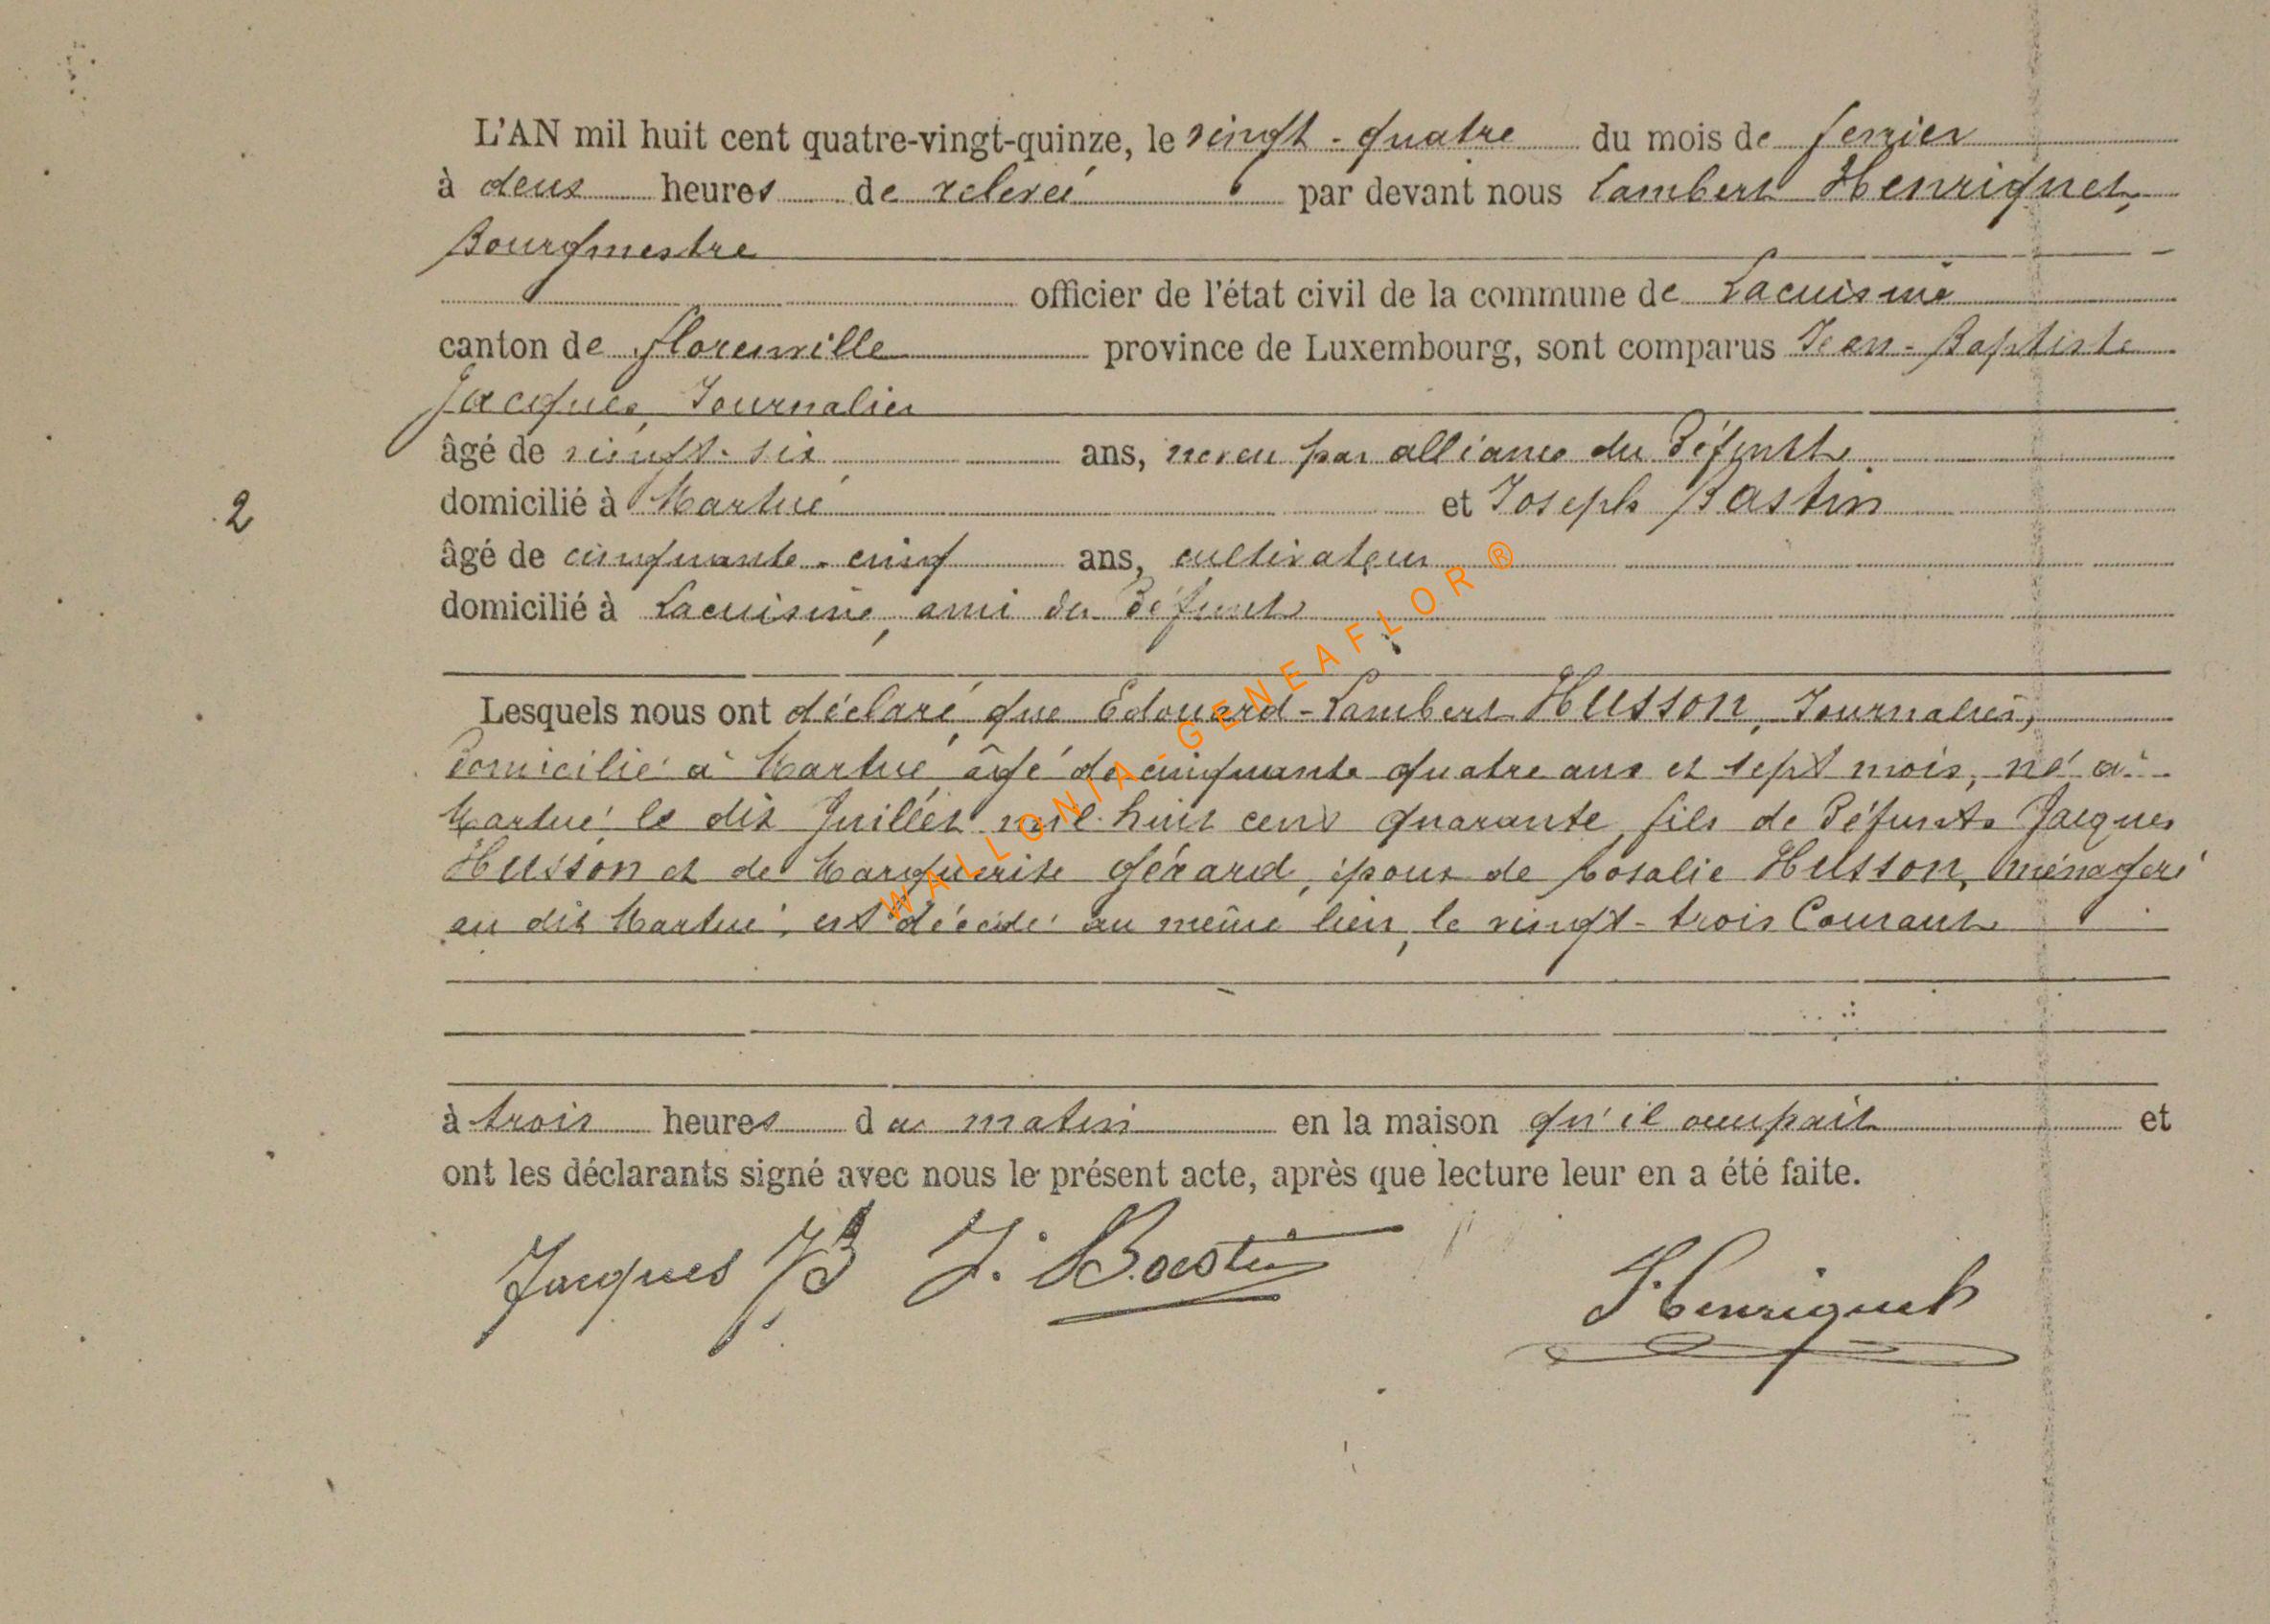 L'AN mil huit cent quatre-vingt-quinze, le vingt-quatre du mois de fevrier
à deux heures de relevée par devant nous Lambert Henriquet,
Bourgmestre
officier de l'état civil de la commune de Lacuisine
canton de florenville province de Luxembourg, sont comparus Jean-Baptiste
Jacques, Journalier
âgé de vingt-six ans, neveu par alliance du Défunt
domicilié à Martué et Joseph Bastin
âgé de cinquante-cinq ans, cultivateur
domicilié à Lacuisine, ami du Défunt
Lesquels nous ont déclaré que Edouard-Lambert Husson, Journalier,
Domicilié à Martué âgé de cinquante quatre ans et sept mois, né à
Martué le dix Juillet mil huit cent quarante, fils de Défunts Jacques
Husson et de Marguerite Gérard, époux de Rosalie Husson, ménagère
au dit Martué, est décédé au même lieu, le vingt-trois Courant
à trois heures du matin en la maison qu'il occupait et
ont les déclarants signé avec nous le présent acte, après que lecture leur en a été faite.
Jacques JB J. Bastin Henriquet
2
WALLONIA-GENEAFLOR ®